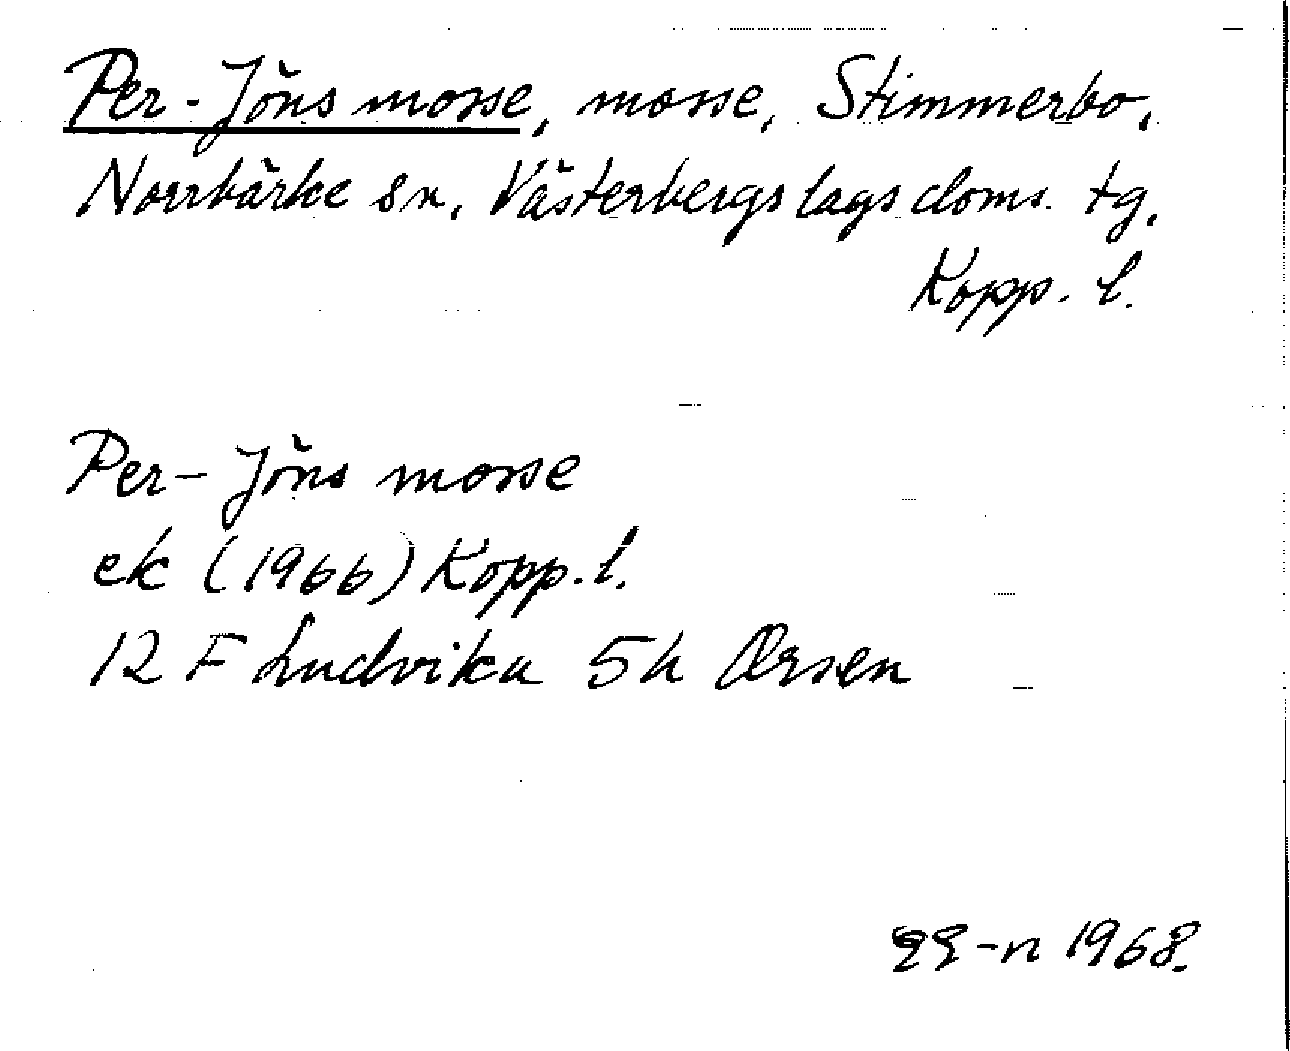 Per-Jöns mosse, mosse, Stimmerbo,
Norrbärke sn, Västerbergslags doms. tg.
Kopp. l.
Per-Jöns mosse
ek (1966) Kopp. l.
12 F Ludvika 5h Orsen
1968.